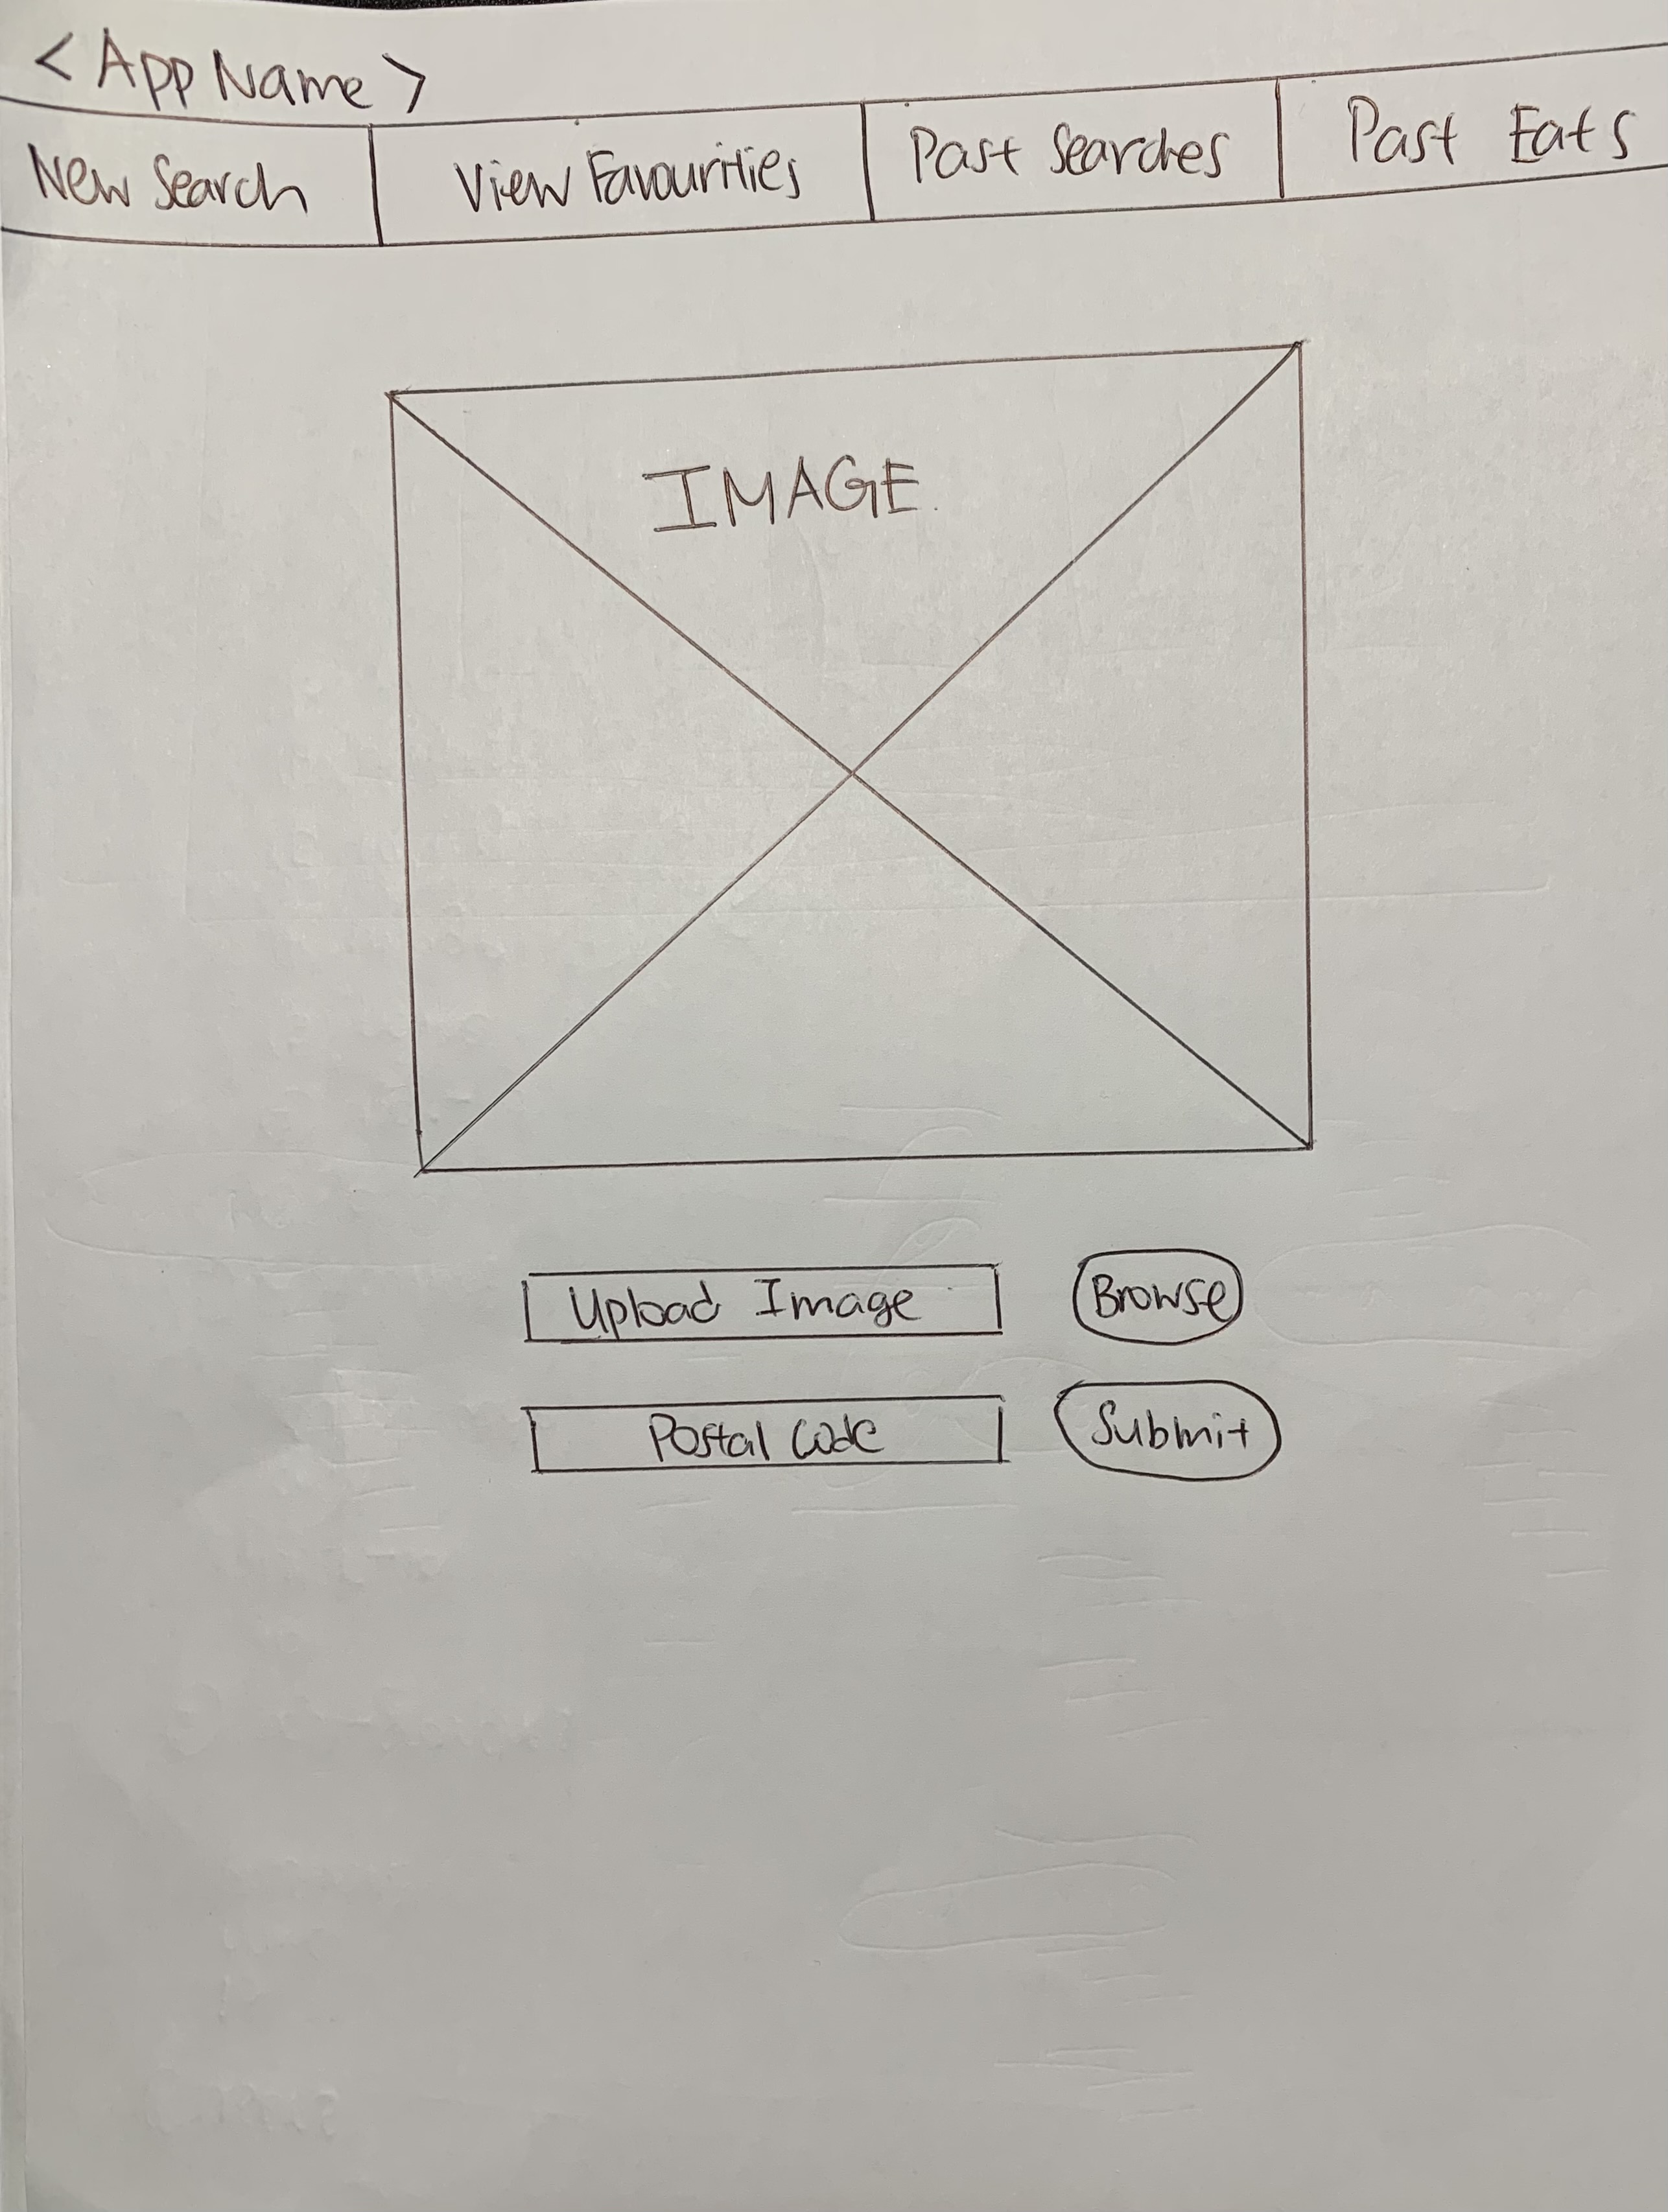 < App Name >
New Search View Favourities Past Searches Past Eats
IMAGE
Upload Image Browse
Postal Code Submit